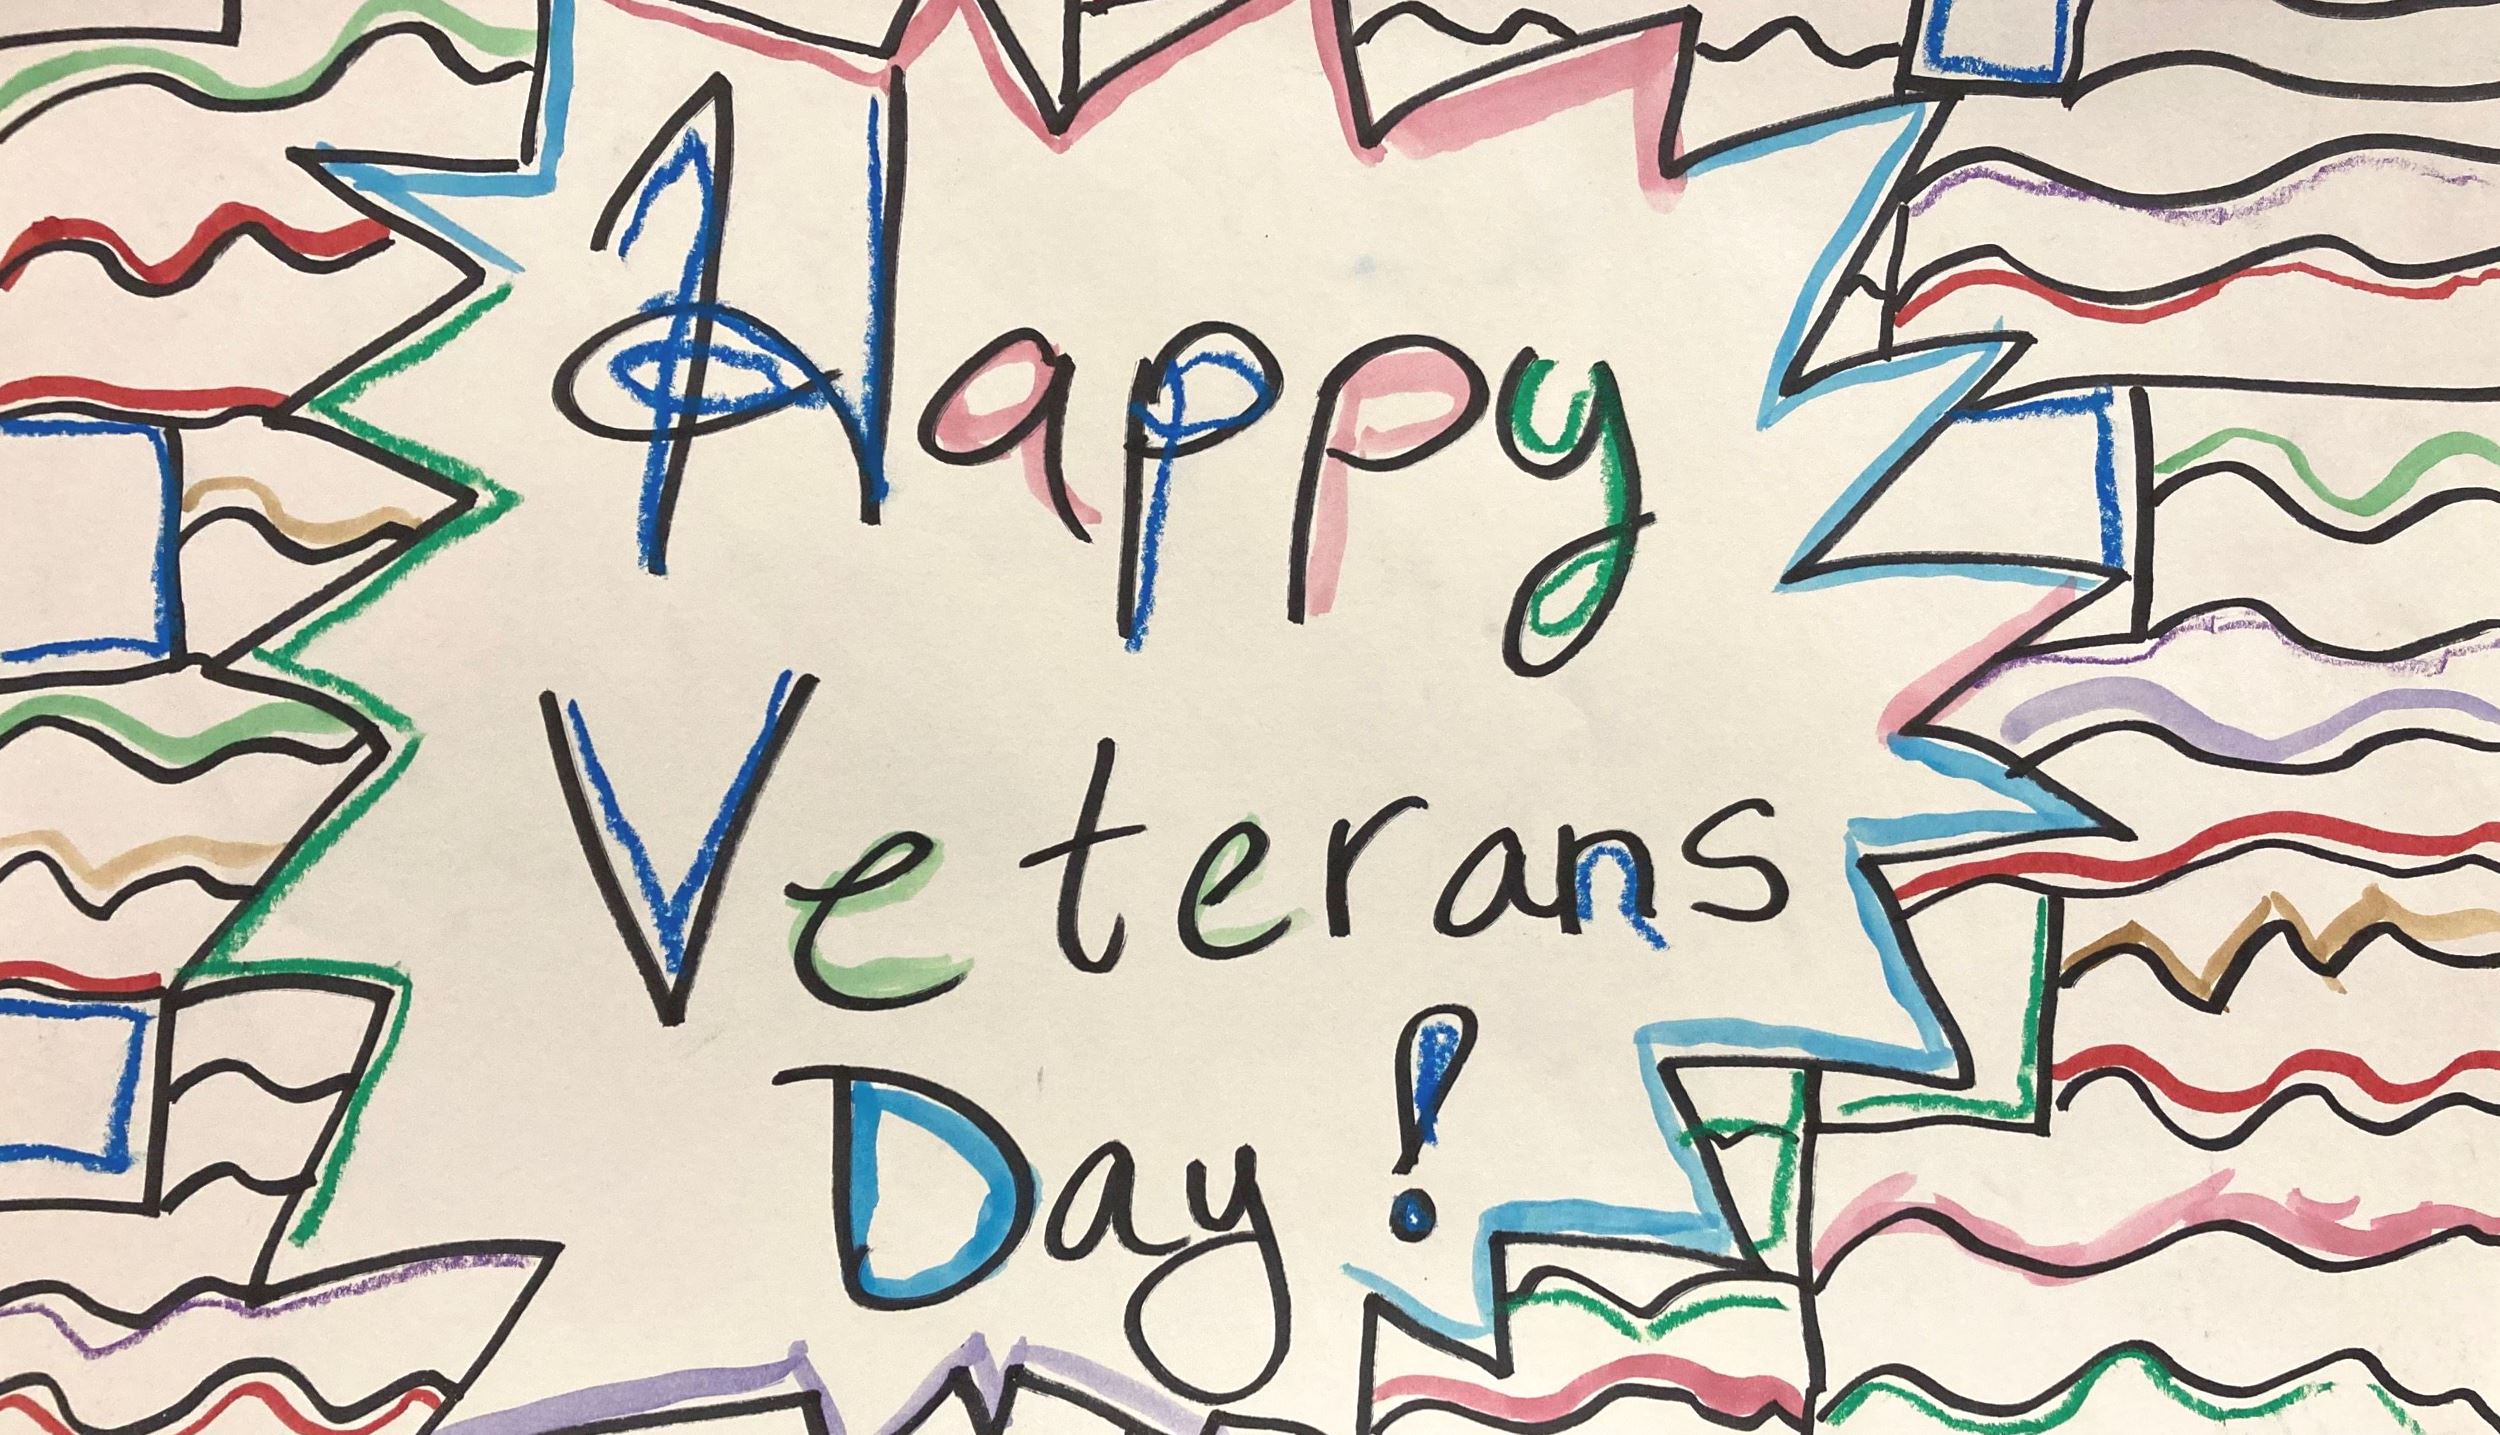 Happy
Veterans
Day!